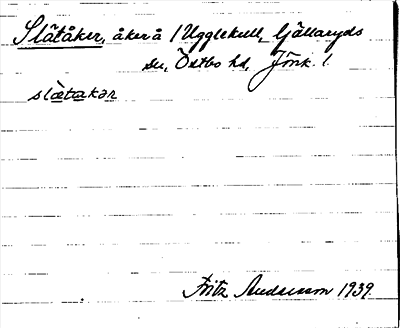 Slätåker, åker å 1 Ugglekull, Gällaryds
sn, Östbo hd, Jönk. l.
slätakər
Fritz Andersson 1939.